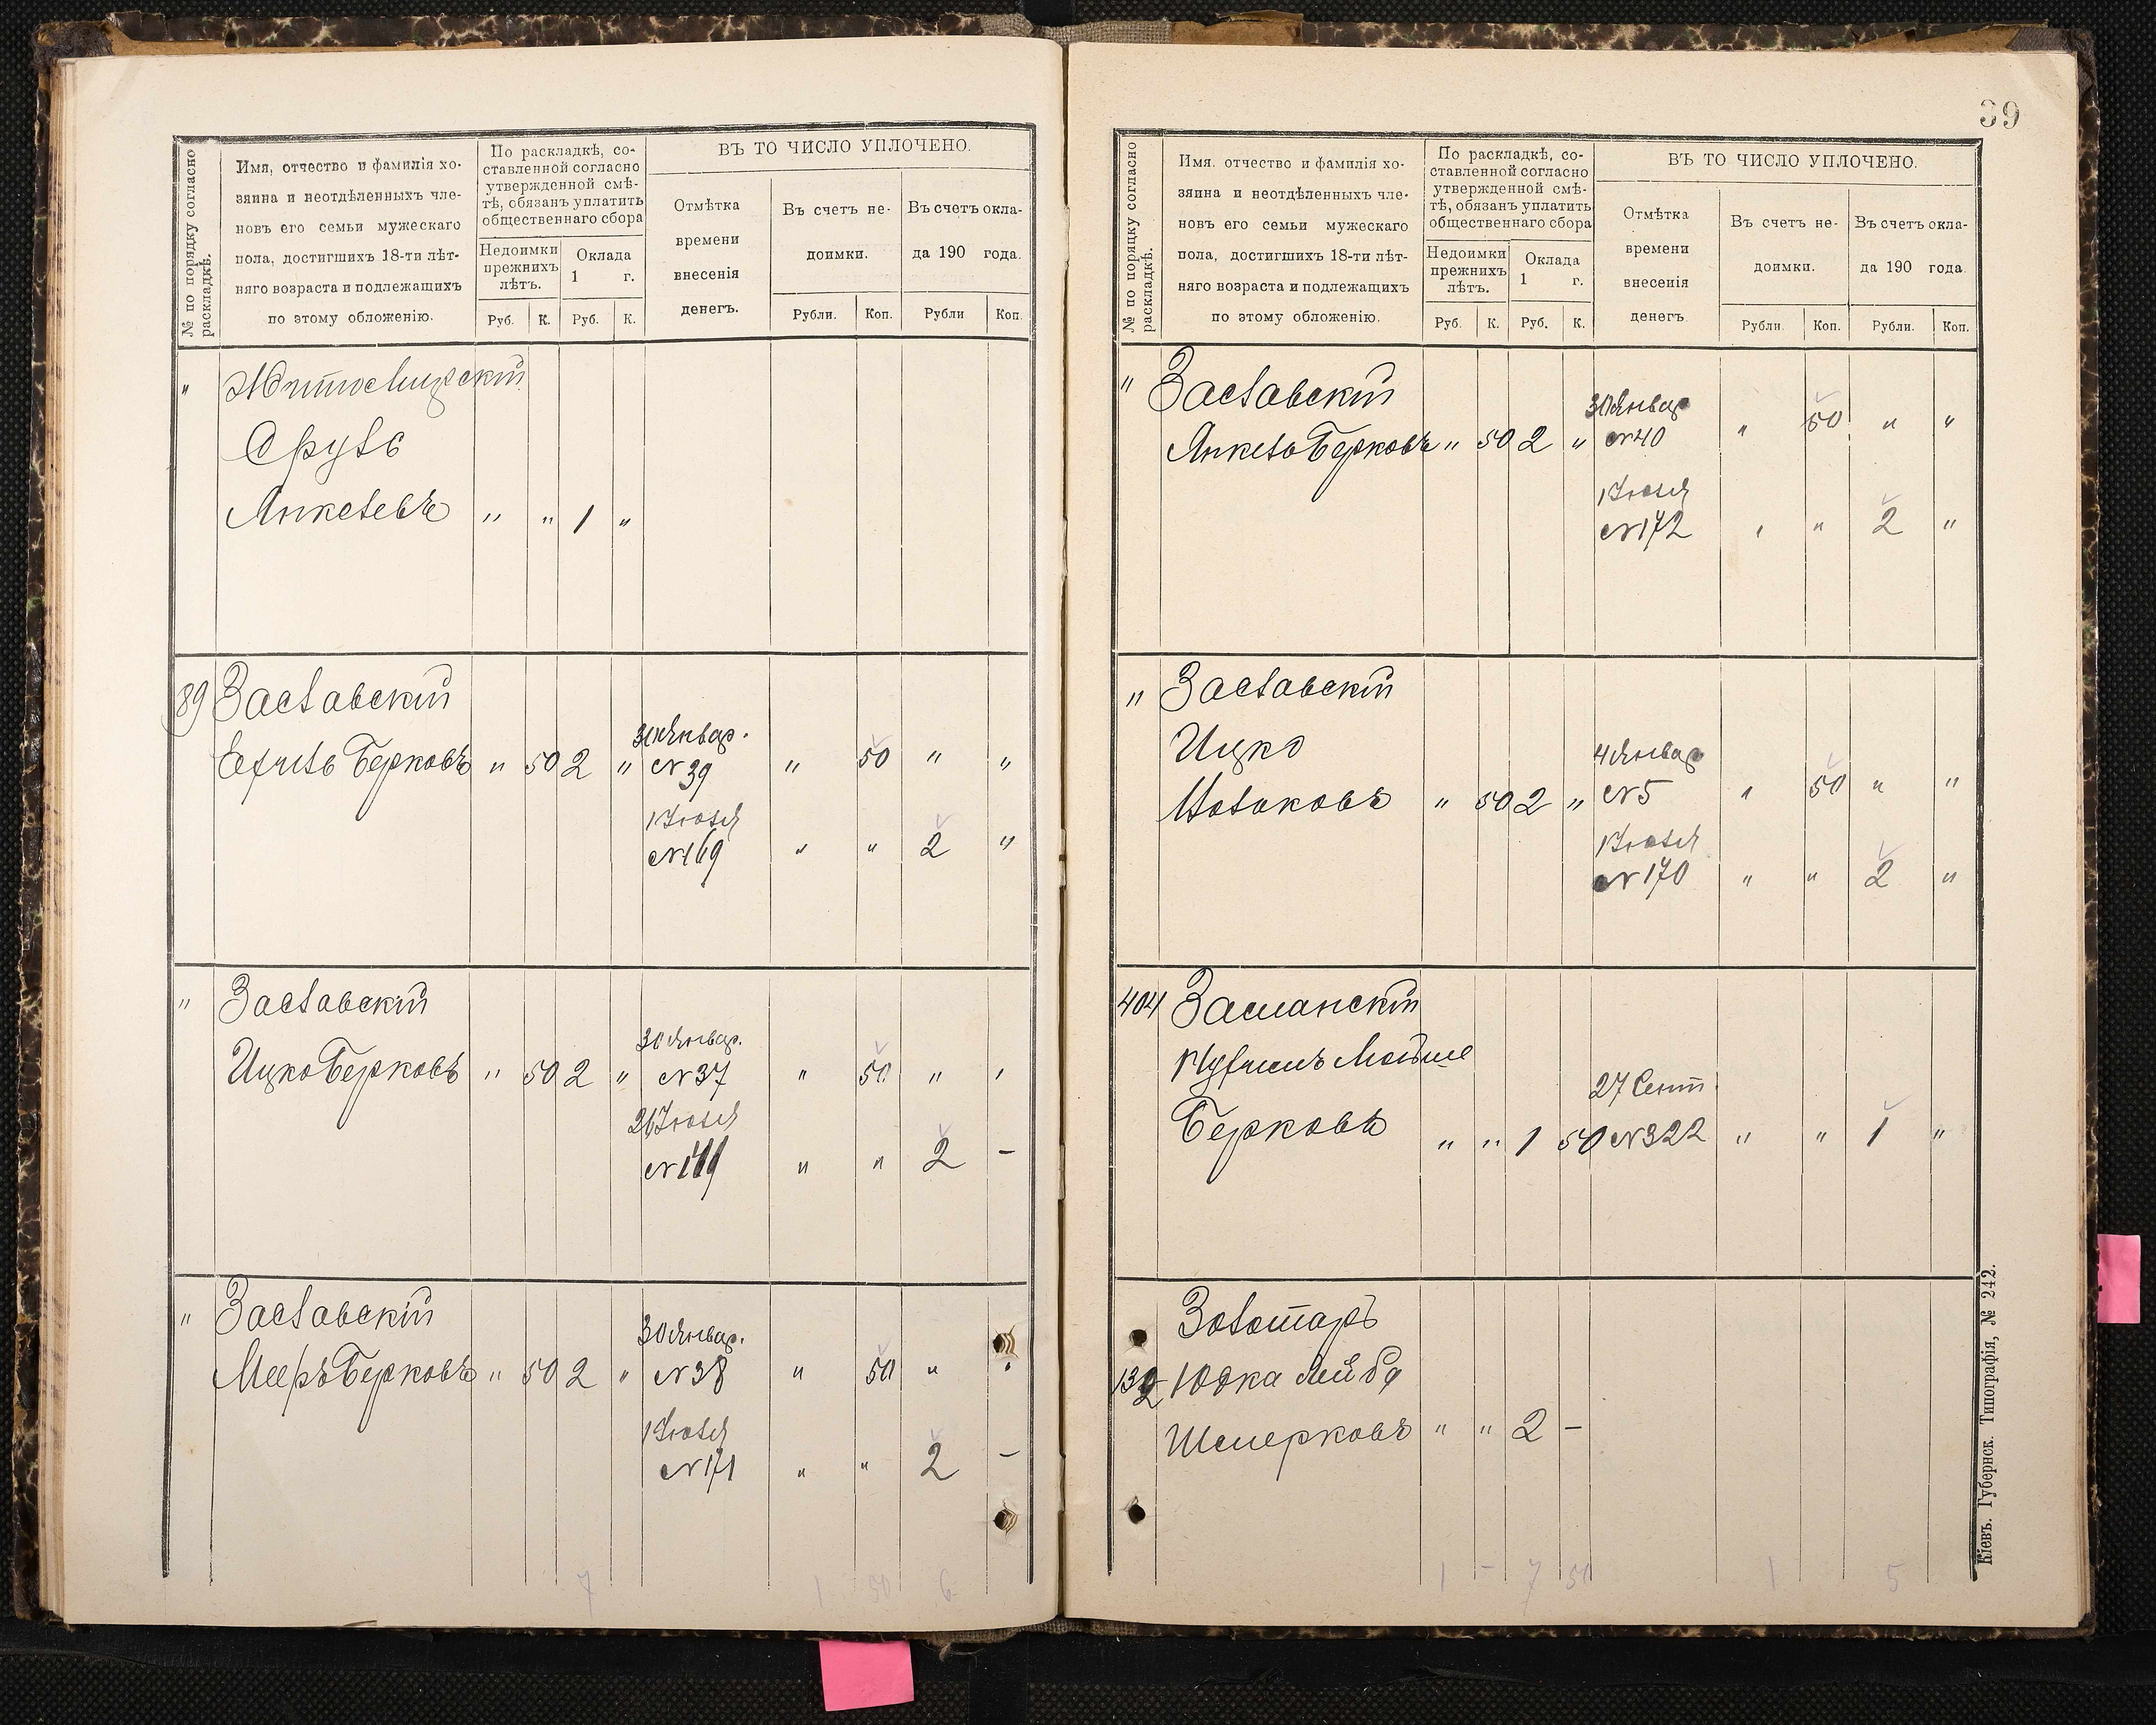 № по порядку согласно раскладкѣ.
Имя, отчество и фамилія хо-
зяина и неотдѣленныхъ чле-
новъ его семьи мужескаго
пола, достигшихъ 18-ти лѣт-
няго возраста и подлежащихъ
по этому обложенію.
По раскладкѣ, со-
ставленной согласно
утвержденной смѣ-
тѣ, обязанъ уплатить
общественнаго сбора
Недоимки
прежнихъ
лѣтъ.
Оклада
1 г.
Руб. К. Руб. К.
ВЪ ТО ЧИСЛО УПЛОЧЕНО.
Отмѣтка
времени
внесенія
денегъ.
Въ счетъ не-
доимки.
Въ счетъ окла-
да 190 года.
Рубли. Коп. Рубли Коп.
"
Срулъ
Янкелевъ " " 1 "
89 Заславскій
Бериковъ " 50 2 "
30 Январ.
№ 39 " 50 " "
1 Іюля
№ 169 " " 2 "
" Заславскій
Ицко Берковъ " 50 2 "
30 Январ.
№ 37 " 50 " "
26 Іюля
" " 2 –
" Заславскій
Мееръ Берковъ " 50 2 "
30 Январ.
№ 38 " 50 " "
1 Іюля
№ 171 " " 2 –
7 1 50 6
39
№ по порядку согласно раскладкѣ.
Имя. отчество и фамилія хо-
зяина и неотдѣленныхъ чле-
новъ его семьи мужескаго
пола, достигшихъ 18-ти лѣт-
няго возраста и подлежащихъ
по этому обложенію.
По раскладкѣ, со-
ставленной согласно
утвержденной смѣ-
тѣ, обязанъ уплатить
общественнаго сбора
Недоимки
прежнихъ
лѣтъ.
Оклада
1 г.
Руб. К. Руб. К.
ВЪ ТО ЧИСЛО УПЛОЧЕНО.
Отмѣтка
времени
внесенія
денегъ.
Въ счетъ не-
доимки.
Въ счетъ окла-
да 190 года.
Рубли. Коп. Рубли. Коп.
" Заславскій
Янкель Берковъ " 50 2 "
30 Январ
№ 40 " 50 " "
1 Іюля
№ 172 " " 2 "
" Заславскій
Ицко
50 2 "
4 Январ
№ 5 " 50 " "
1 Іюля
№ 170 " " 2 "
404 Засманскій
Мойше
Берковъ " " 1 50
27 Сент.
№ 322 " " 1 "
Золотаръ
132 Юдка Лейба
Шмерковъ " " 2 –
1 – 7 50 1 5
Кіевъ. Губернск. Типографія, № 242.